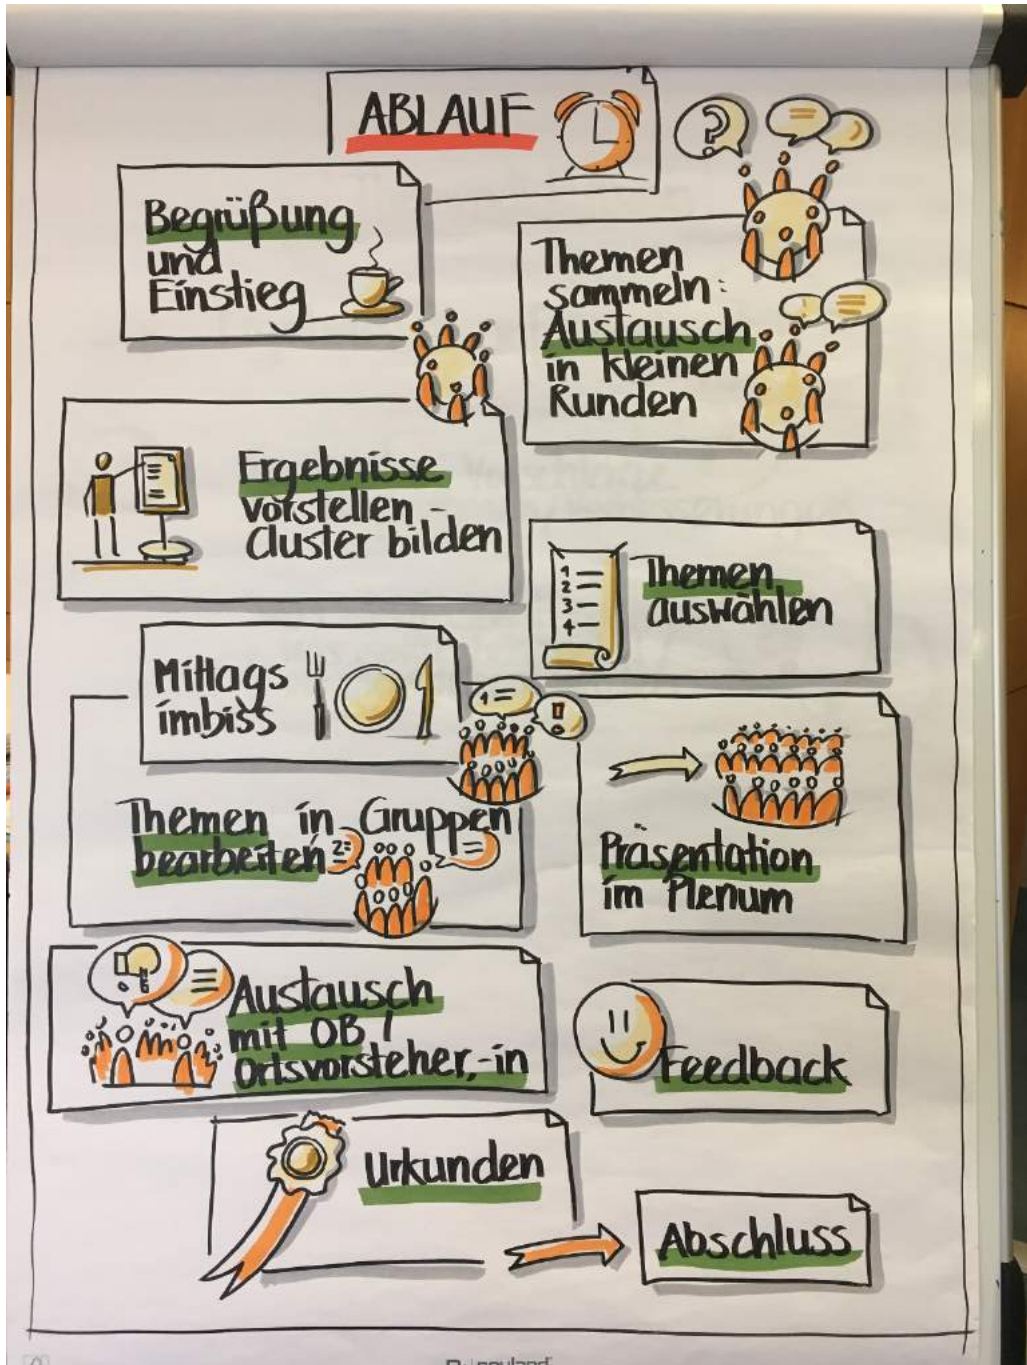 ABLAUF
Begrüßung
und
Einstieg
Themen
sammeln:
Austausch
in kleinen
Runden
Ergebnisse
vorstellen -
Cluster bilden
1
2
3
4
Themen
auswählen
Mittags
imbiss
Themen in Gruppen
bearbeiten
Präsentation
im Plenum
Austausch
mit OB /
Ortsvorsteher,-in
Feedback
Urkunden
Abschluss